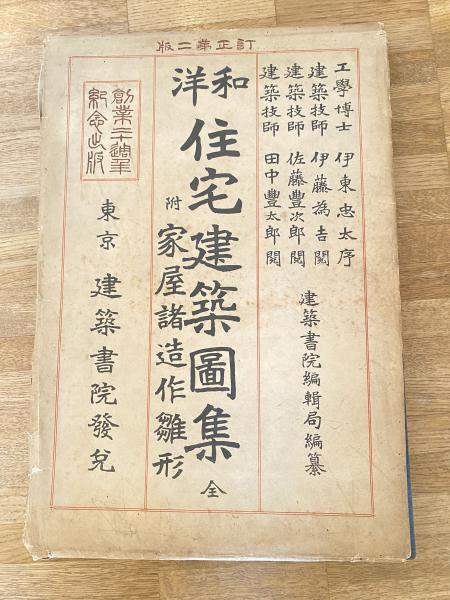 訂正第二版
工學博士 伊東忠太序
建築技師 伊藤為吉閲
建築技師 佐藤豐次郎閲
建築技師 田中豐太郎閲
建築書院編輯局編纂
和洋
住宅建築圖集 全
附 家屋諸造作雛形
創業二十週年
紀念出版
東京 建築書院發兌